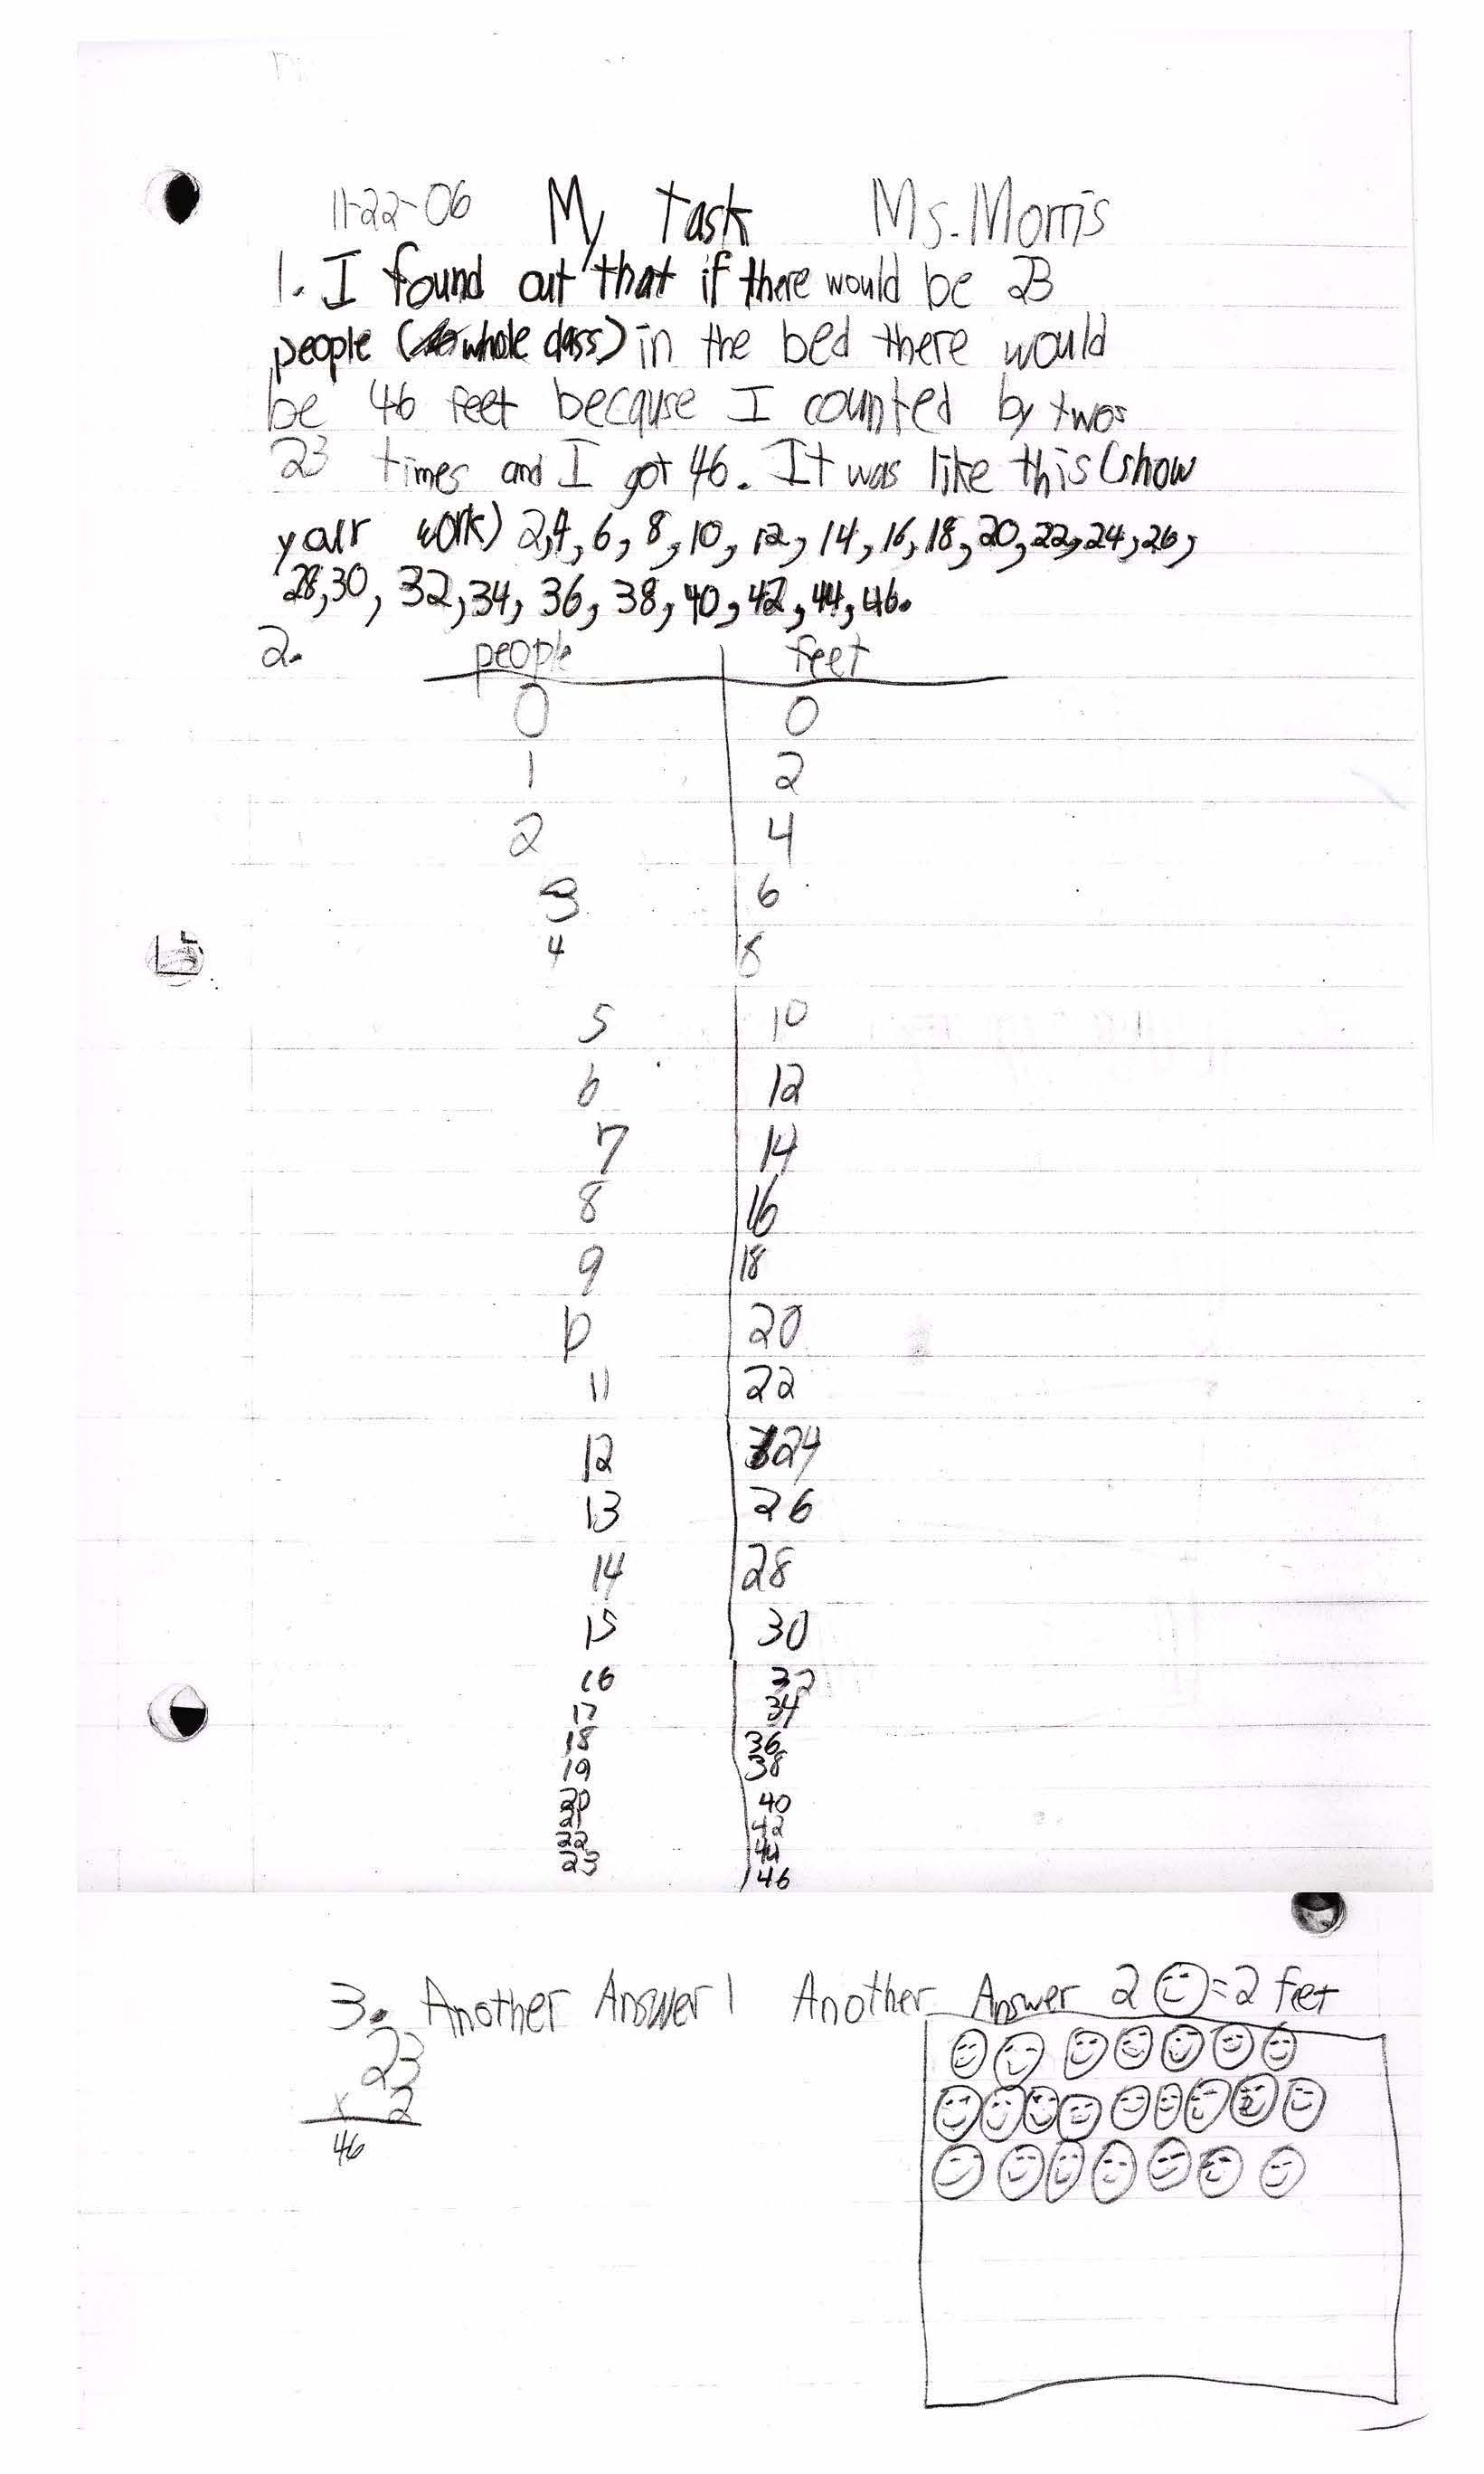 11-22-06 My Task Ms. Morris
1. I found out that if there would be 23
people (whole class) in the bed there would
be 46 feet because I counted by twos
23 times and I got 46. It was like this (show
your work) 2,4,6,8,10,12,14,16,18,20,22,24,26,
28,30,32,34,36,38,40,42,44,46.
2. people feet
0 0
1 2
2 4
3 6
4 8
5 10
6 12
7 14
8 16
9 18
10 20
11 22
12 24
13 26
14 28
15 30
16 32
17 34
18 36
19 38
20 40
21 42
22 44
23 46
3. Another Answer 1 Another Answer 2 = 2 feet
23
x 2
46